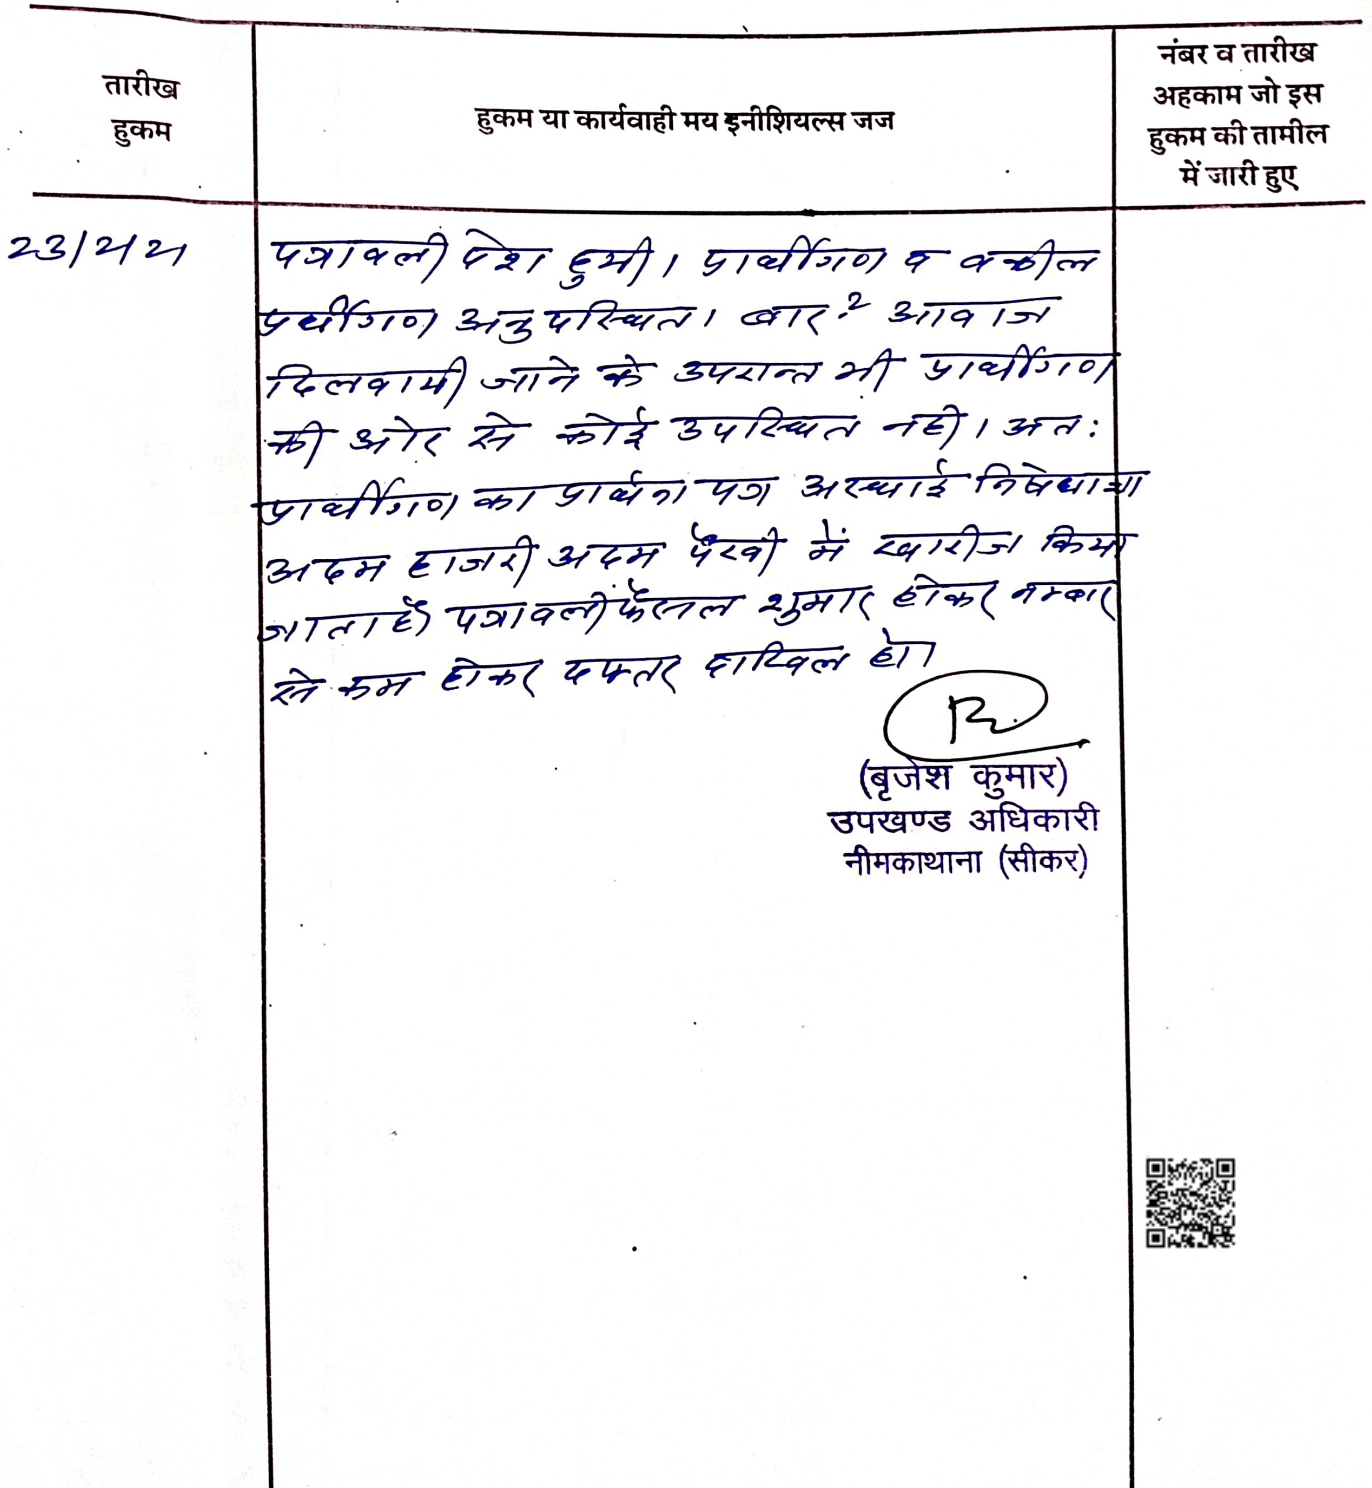 तारीख
हुकम
हुकम या कार्यवाही मय इनीशियल्स जज
नंबर व तारीख
अहकाम जो इस
हुकम की तामील
में जारी हुए
पत्रावली पेश हुयी। प्रार्थीगण व वकील
प्रर्थीगण अनुपस्थित। बार-2 आवाज
दिलवायी जाने के उपरान्त भी प्रार्थीगण
की ओर से कोई उपस्थित नही। अतः
प्रार्थीगण का प्रार्थना पत्र अस्थाई निषेधाज्ञा
अदम हाजरी अदम पैरवी में खारीज किया
जाता है पत्रावली फैसल शुमार होकर नम्बार
से कम होकर दफ्तर दाखिल हो।
(बृजेश कुमार)
उपखण्ड अधिकारी
नीमकाथाना (सीकर)